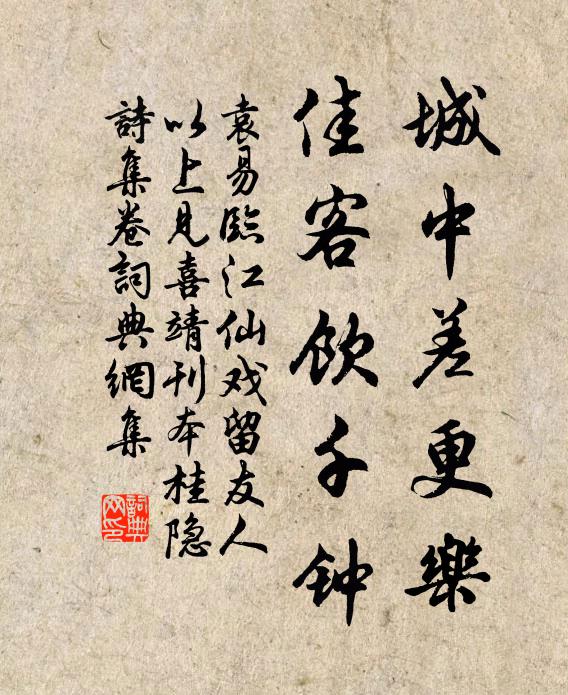 城中差更樂
佳客飲千钟
袁易臨江仙戏留友人
以上見喜靖刊本桂隐
詩集卷詞典網集
詞典
网印